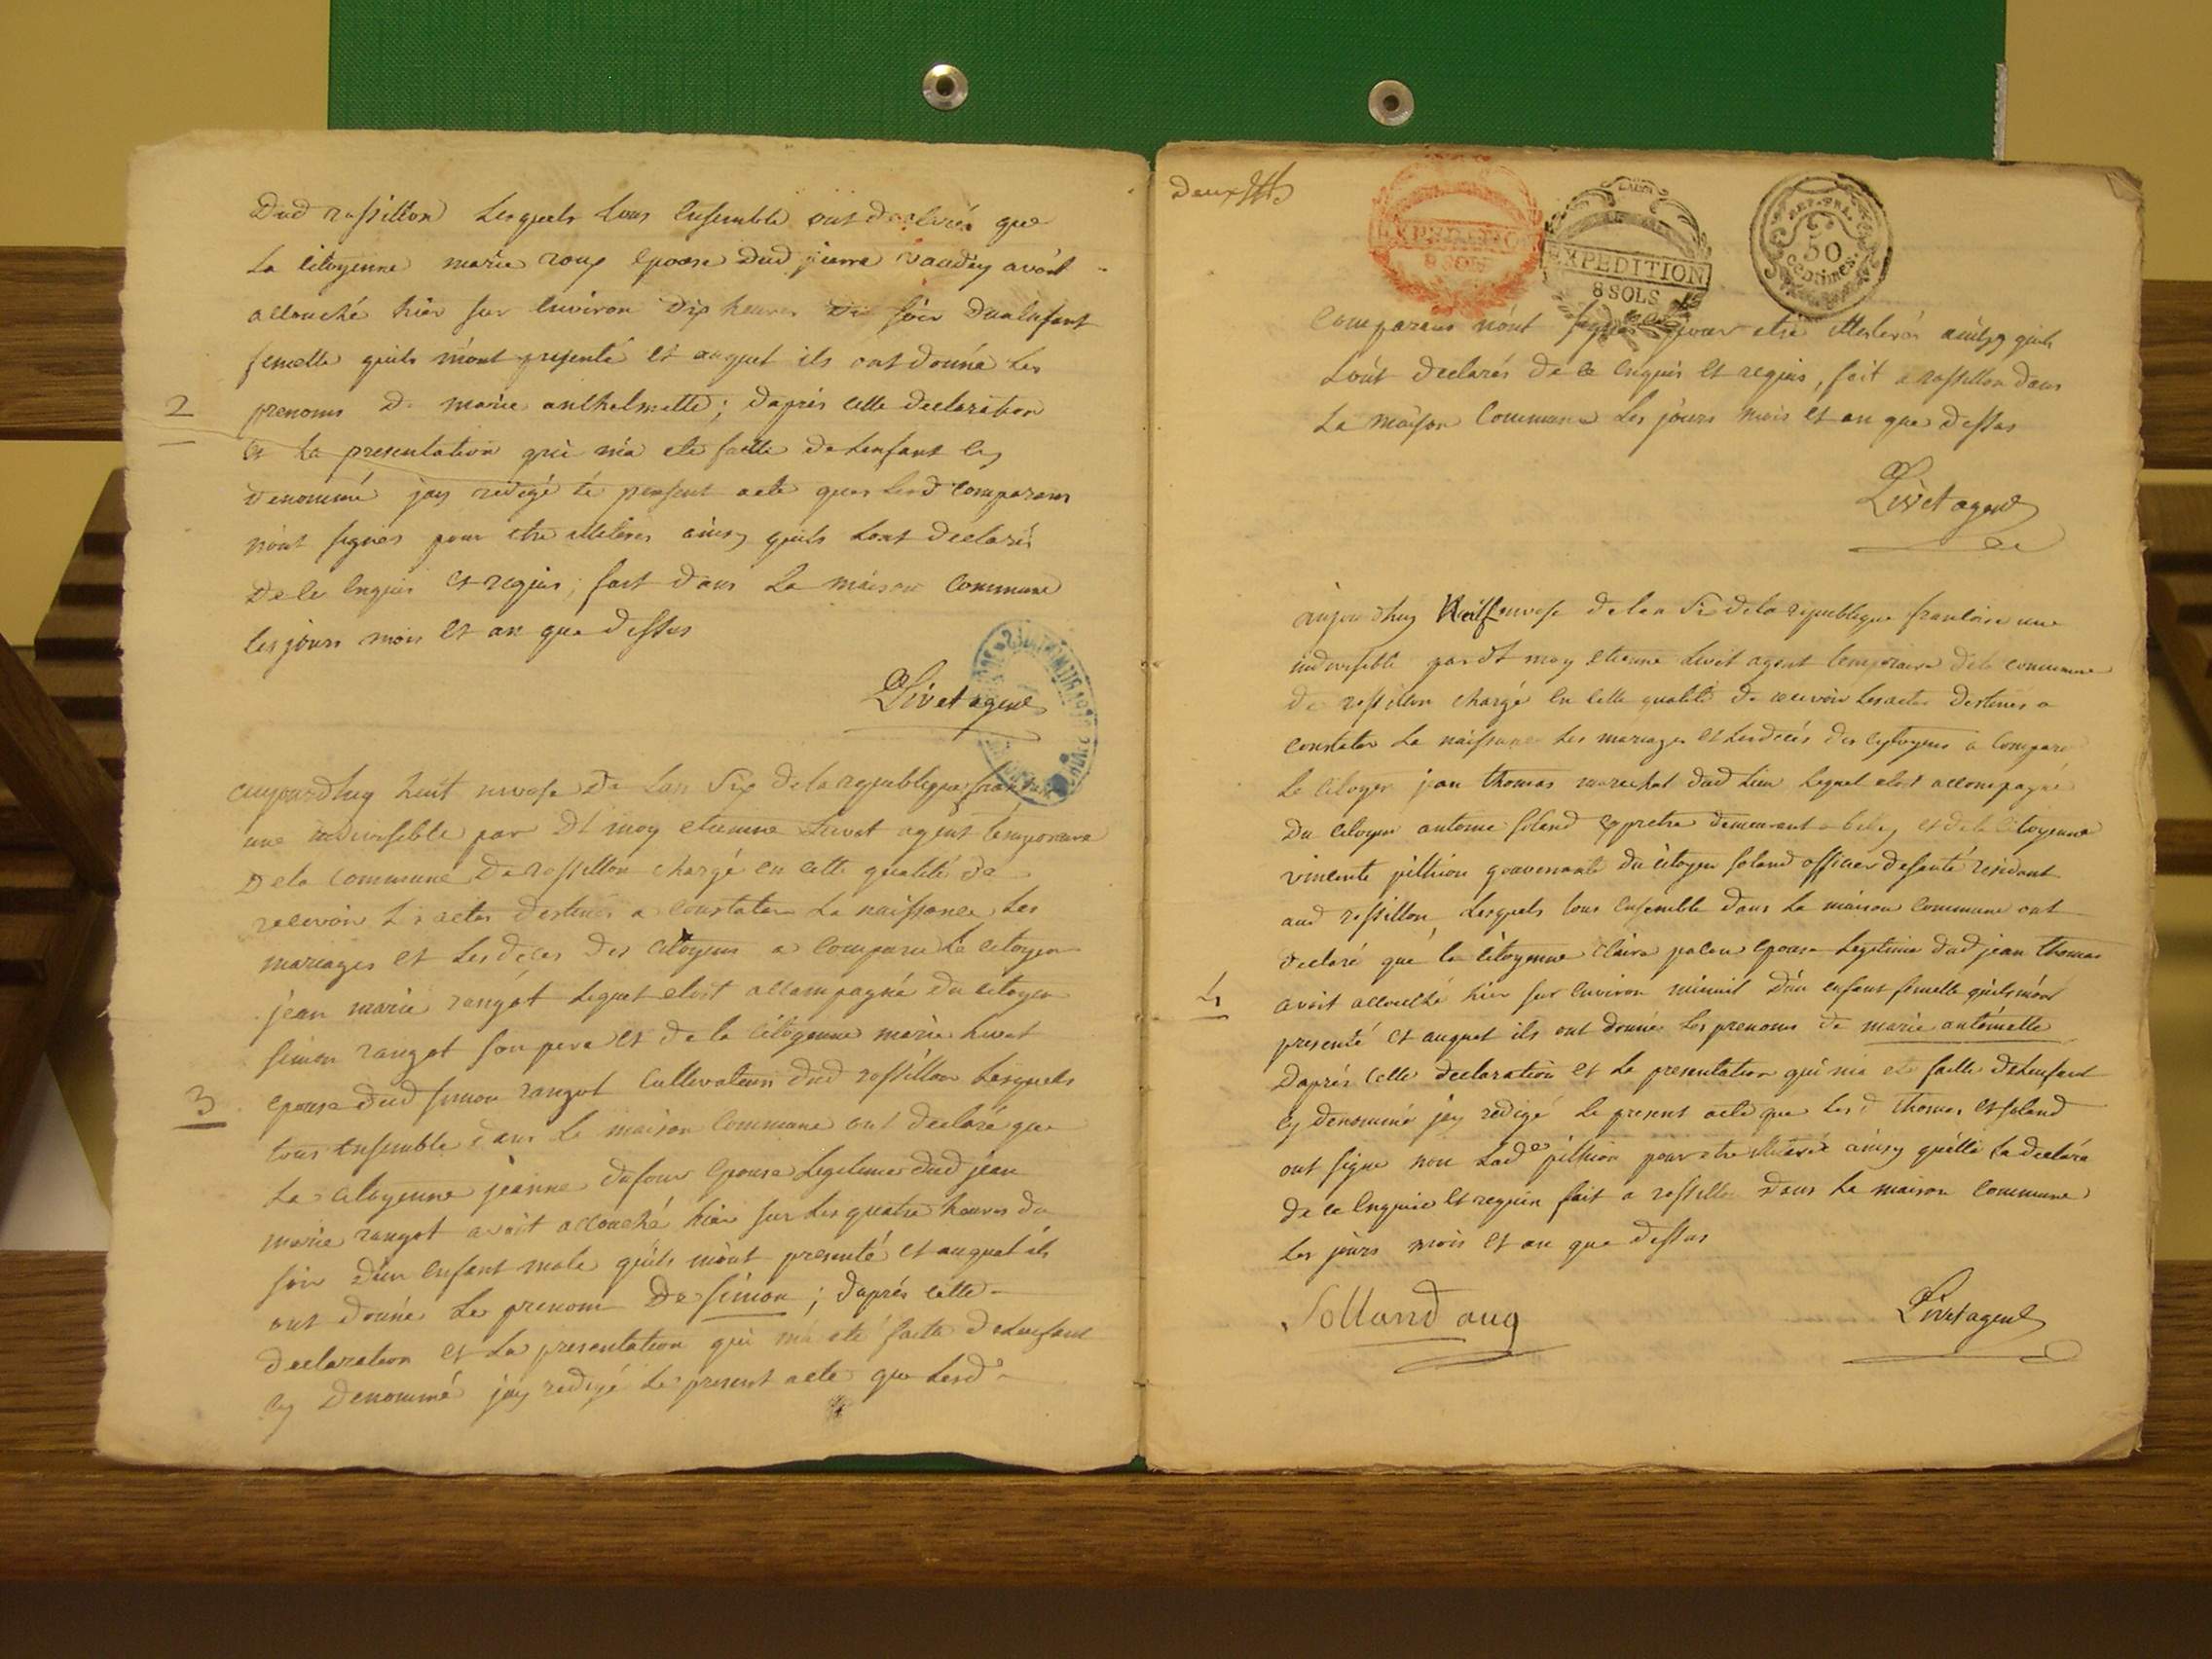 Dud rossillon Lesquels tous Ensemble ont declarés que
La Citoyenne marie roux Epouse Dud pierre vaudey avoit
accouché hier sur Environ Dix heures Du soir Dun Enfant
femelle quils m'ont presenté Et auquel ils ont donné Les
2
prenoms De marie anthelmette; Dapres Cette Declaration
Et La presentation qui m'a eté faitte De Lenfant Cy
Denommé jay redigé Le present acte que Lesd Comparans
n'ont signés pour etre illiterés ainsy quils Lont declarés
De Ce Enquis Et requis; fait Dans La maison Commune
Les jours mois Et an que Dessus
Livet agent
aujourdhuy huit nivose De Lan Six De la republique francoise
une indivisible par Dt moy etienne Livet agent temporaire
De la Commune De rossillon chargé En Cette qualité De
recevoir Les actes Destinés a Constater La naissance Les
mariages Et Les deces Des Citoyens a Comparu Le Citoyen
jean marie rangot Lequel etoit accompagné Du Citoyen
simon rangot son pere Et De la Citoyenne marie Livet
3
Epouse Dud simon rangot Cultivateurs Dud rossillon Lesquels
tous Ensemble Dans La maison Commune ont Declaré que
La Citoyenne jeanne Dufour Epouse Legitime Dud jean
marie rangot avoit accouché hier sur Les quatre heures Du
soir D'un Enfant male quils m'ont presenté Et auquel ils
ont Donné Le prenom De simon; Daprés Cette
Declaration Et La presentation qui m'a eté faitte De Lenfant
Cy Denommé jay redigé Le present acte que Lesd
Deux
EXPEDITION
8 SOLS
EXPEDITION
8 SOLS
REP. FRA.
50
Centimes.
Comparans n'ont signés pour etre illiterés ainsy quils
L'ont Declarés De Ce Enquis Et requis, fait a rossillon Dans
La maison Commune Les jours mois Et an que Dessus
Livet agent
aujourdhuy huit nivose De Lan Six De la republique francoise une
indivisible par Dt moy etienne Livet agent temporaire De la Commune
De rossillon chargé En Cette qualité De recevoir Les actes Destinés a
Constater La naissance Les mariages Et Les decés Des Cytoyens a Comparu
Le Citoyen jean thomas marechal Dud Lieu Lequel etoit accompagné
Du Citoyen antoine soland pretre Demeurant a belley Et De la Citoyenne
vincente pithion gouvernante Du Citoyen soland officier De santé residant
aud rossillon, Lesquels tous Ensemble Dans La maison Commune ont
Declaré que la Citoyenne Claire Epouse Legitime Dud jean thomas
4
avoit accouché hier sur Environ minuit D'un Enfant femelle quils m'ont
presenté Et auquel ils ont donné Les prenoms De marie antoinette
Daprés Cette Declaration Et La presentation qui m'a eté faitte De Lenfant
Cy Denommé jay redigé Le present acte que Lesd thomas Et soland
ont signé non Lade pithion pour etre illiterée ainsy quelle La Declaré
De Ce Enquise Et requise fait a rossillon Dans La maison Commune
Les jours mois Et an que Dessus
Solland
Livet agent